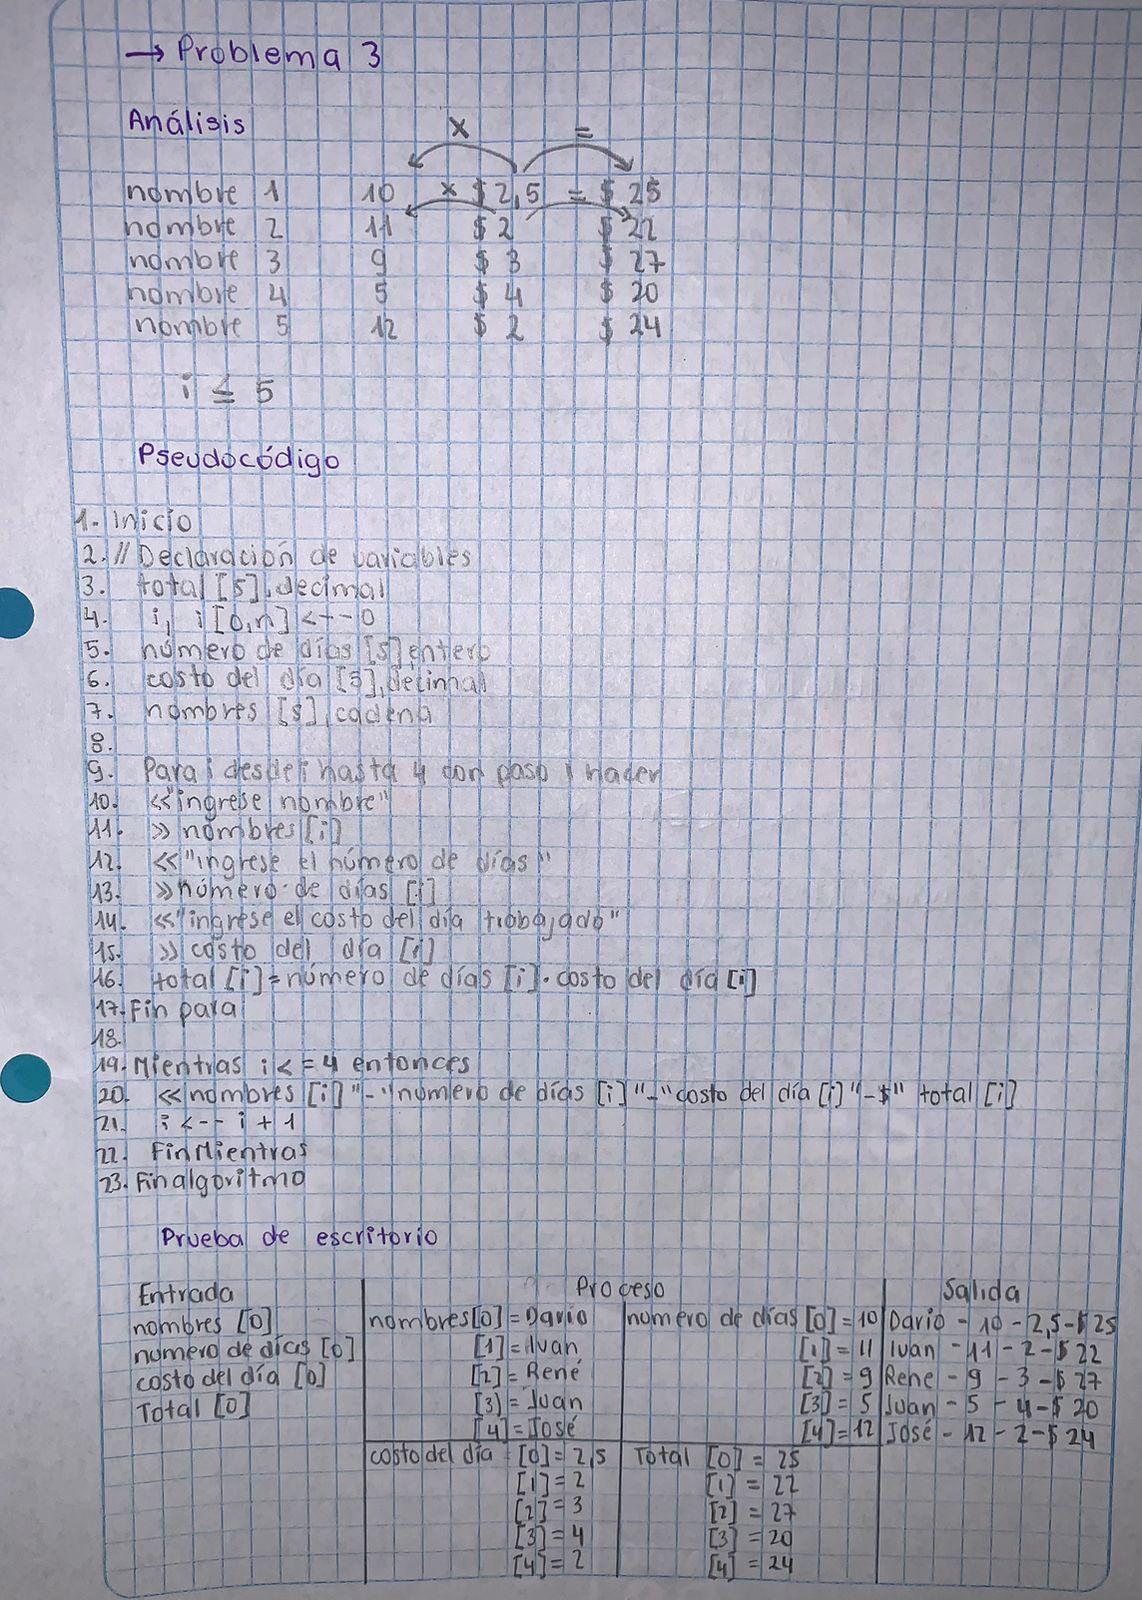 → Problema 3
Análisis
x =
nombre 1 10 x $ 2,5 = $ 25
nombre 2 11 $ 2 $ 22
nombre 3 9 $ 3 $ 27
nombre 4 5 $ 4 $ 20
nombre 5 12 $ 2 $ 24
i ≤ 5
Pseudocódigo
1. Inicio
2. // Declaración de variables
3. total [5], decimal
4. i, i [0,n] <--- 0
5. número de días [5] entero
6. costo del día [5], decimal
7. nombres [5], cadena
8.
9. Para i desde i hasta 4 con paso 1 hacer
10. <<"ingrese nombre"
11. >> nombres [i]
12. <<"ingrese el número de días"
13. >> número de días [i]
14. <<"ingrese el costo del día trabajado"
15. >> costo del día [i]
16. total [i] = número de días [i] · costo del día [i]
17. Fin para
18.
19. Mientras i < = 4 entonces
20. << nombres [i] "-" número de días [i] "-" costo del día [i] "-$" total [i]
21. i <-- i + 1
22. FinMientras
23. Finalgoritmo
Prueba de escritorio
Entrada Proceso Salida
nombres [0] nombres[0] = Dario numero de días [0] = 10 Dario - 10 - 2,5 - $ 25
numero de días [0] [1] = Ivan [1] = 11 Ivan - 11 - 2 - $ 22
costo del día [0] [2] = René [2] = 9 Rene - 9 - 3 - $ 27
Total [0] [3] = Juan [3] = 5 Juan - 5 - 4 - $ 20
[4] = José [4] = 12 José - 12 - 2 - $ 24
costo del día [0] = 2,5 Total [0] = 25
[1] = 2 [1] = 22
[2] = 3 [2] = 27
[3] = 4 [3] = 20
[4] = 2 [4] = 24